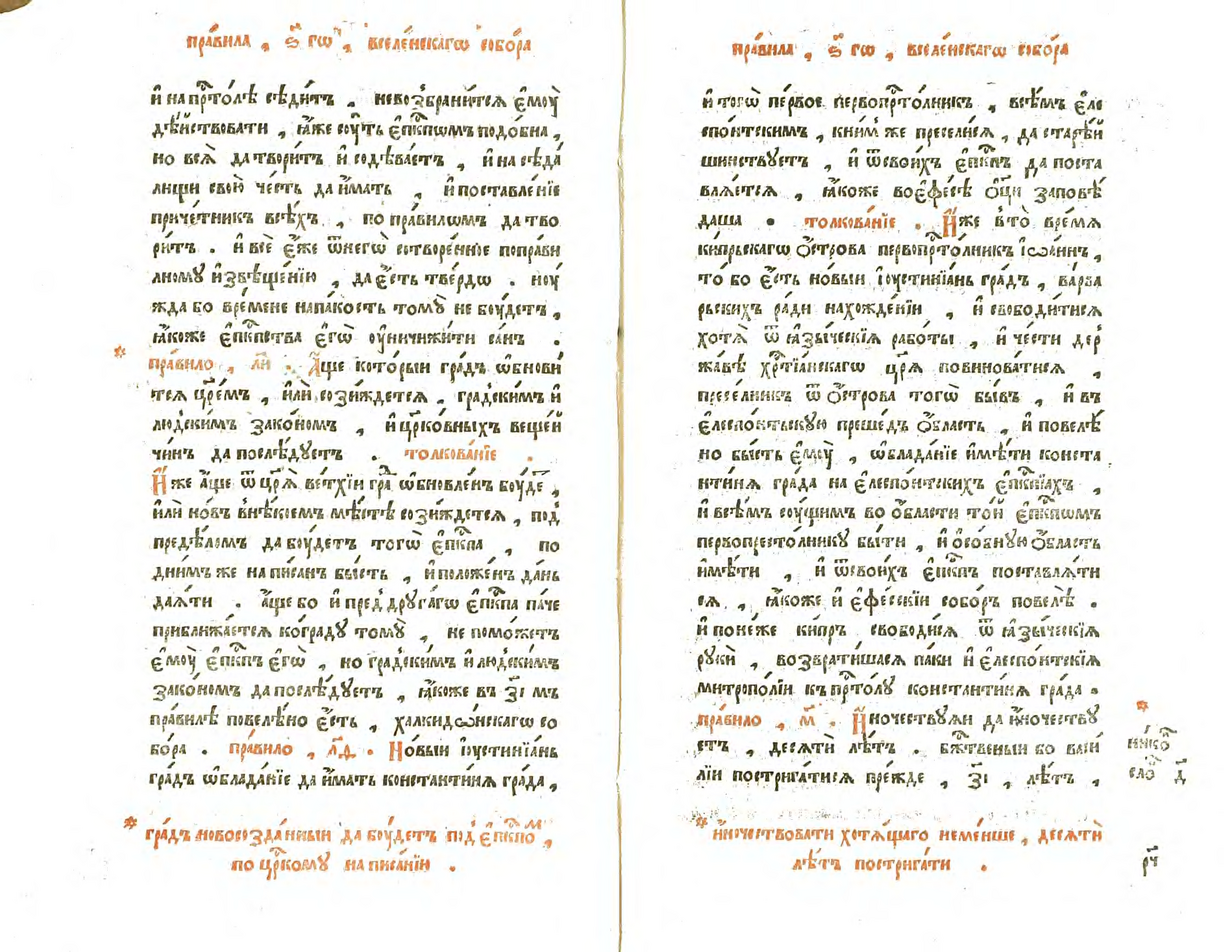 пра́вила , ѕ҃ гѡ , вселе́нскагѡ собо́ра
и҆ на прⷭ҇то́лѣ сѣди́тъ , невозбрани́тсѧ є҆моу̀
дѣ́йствовати , ꙗ҆́же соу́ть є҆пⷭ҇кпѡмъ подо́бна ,
но всѧ̀ да твори́тъ и҆ содѣва́етъ , и҆ на сѣда́
лищи свою̀ че́сть да и҆́мать , и҆ поставле́нїе
приче́тник всѣ́хъ , по пра́вилѡмъ да тво
ри́тъ . и҆ всѐ є҆́же ѿ негѡ̀ сотворе́нное попра́ви
лному и҆звѣще́нїю , да є҆́сть тве́рдѡ . ноу́
жда бо вре́мене напа́кость томꙋ̀ не боу́детъ ,
ꙗ҆́коже є҆пⷭ҇кпства є҆гѡ̀ оу҆ничижи́ти са́нъ .
пра́вило , л҃и . А҆́ще кото́рыи гра́дъ ѡ҆бнови́
тсѧ цр҃е́мъ , и҆лѝ сози́ждетсѧ , гра́дскимъ и҆
людски́мъ зако́номъ , и҆ цр҃ко́вныхъ веще́й
чи́нъ да послѣ́дꙋетъ . толкова́нїе .
И҆́же а҆́ще ѿ цр҃ѧ̀ ве́тхїи гра́ ѡ҆бновле́нъ боу́де ,
и҆лѝ но́въ внѣ́коемъ мѣ́стѣ сози́ждетсѧ , под
предѣ́ломъ да боу́детъ тогѡ̀ є҆пⷭ҇кпа , по
дни́мъ же на писа́нъ бы́сть , и҆ положе́нъ да́нь
даѧ́ти . а҆́ще бо и҆ пред дрꙋга́гѡ є҆пⷭ҇кпа па́че
приближа́етсѧ ко гра́дꙋ томꙋ̀ , не помо́жетъ
є҆моу̀ є҆пⷭ҇кпъ є҆гѡ̀ , но гра́дскимъ и҆ людски́мъ
зако́номъ да послѣ́дꙋетъ , ꙗ҆́коже въ з҃і мъ
пра́вилѣ повеле́но є҆́сть , халкидѡ́нскагѡ со
бо́ра . пра́вило , л҃ѳ . Но́выи і҆оустинїа́нь
гра́дъ ѡ҆блада́нїе да и҆́мать константи́нѧ гра́да ,
* гра́дъ новосо́зданныи да боу́детъ под є҆пⷭ҇кпо́м ,
по цр҃комꙋ на писа́нїи .
пра́вила , ѕ҃ гѡ , вселе́нскагѡ собо́ра
и҆ тогѡ̀ пе́рвое первопрⷭ҇то́лникъ , всѣ́мъ є҆ле
спо́нтскимъ , кни́м же пресели́сѧ , да старѣ́й
шинствꙋетъ , и҆ ѿ свои́хъ є҆пⷭ҇кпъ да поста
влѧ́етсѧ , ꙗ҆́коже во є҆фе́сѣ ѻ҆ц҃ы заповѣ́
даша . толкова́нїе . И҆́же в то̀ вре́мѧ
ки́прьскагѡ ѻ҆́строва первопрⷭ҇то́лникъ і҆ѡа́ннъ ,
то́ бо є҆́сть но́выи і҆оустинїа́нь гра́дъ , ва́рва
рьскихъ ра́ди нахожде́нїи , и҆ свободи́тисѧ
хотѧ̀ ѿ ꙗ҆зы́ческїѧ рабо́ты , и҆ че́сти дер
жа́вѣ хрⷭ҇тїа́нскагѡ цр҃ѧ̀ повинова́тисѧ ,
пресе́лникъ ѿ ѻ҆́строва тогѡ̀ бы́въ , и҆ въ
є҆леспо́нтьскꙋю преше́дъ ѻ҆́бласть , и҆ повелѣ́
но бы́сть є҆моу̀ , ѡ҆блада́нїе и҆мѣ́ти конста
нти́нѧ гра́да на є҆леспо́нтских є҆пⷭ҇кпїѧхъ ,
и҆ всѣ́мъ соу́щимъ во ѻ҆́бласти то́й є҆пⷭ҇кпѡмъ
первопресто́лникꙋ бы́ти , и҆ ѻ҆со́бнꙋю ѻ҆́бласть
и҆мѣ́ти , и҆ ѿ свои́хъ є҆пⷭ҇кпъ поставлѧ́ти
сѧ , ꙗ҆́коже и҆ є҆фе́сскїи собо́ръ повелѣ̀ .
и҆ поне́же ки́пръ свободи́сѧ ѿ ꙗ҆зы́ческїѧ
рꙋкѝ , возврати́шасѧ па́ки и҆ є҆леспо́нтскїѧ
митропо́лїи къ прⷭ҇то́лꙋ константи́нѧ гра́да .
пра́вило , м҃ . И҆́ночествꙋѧи да и҆́ночествꙋ
етъ , десѧтѝ лѣ́тъ . бж҃твеныи бо васи́
лїи пострига́тисѧ пре́жде , з҃і , лѣ́тъ ,
* и҆́ночествовати хотѧ́щаго неме́нше , десѧтѝ
лѣ́тъ постриѓати .
рч҃